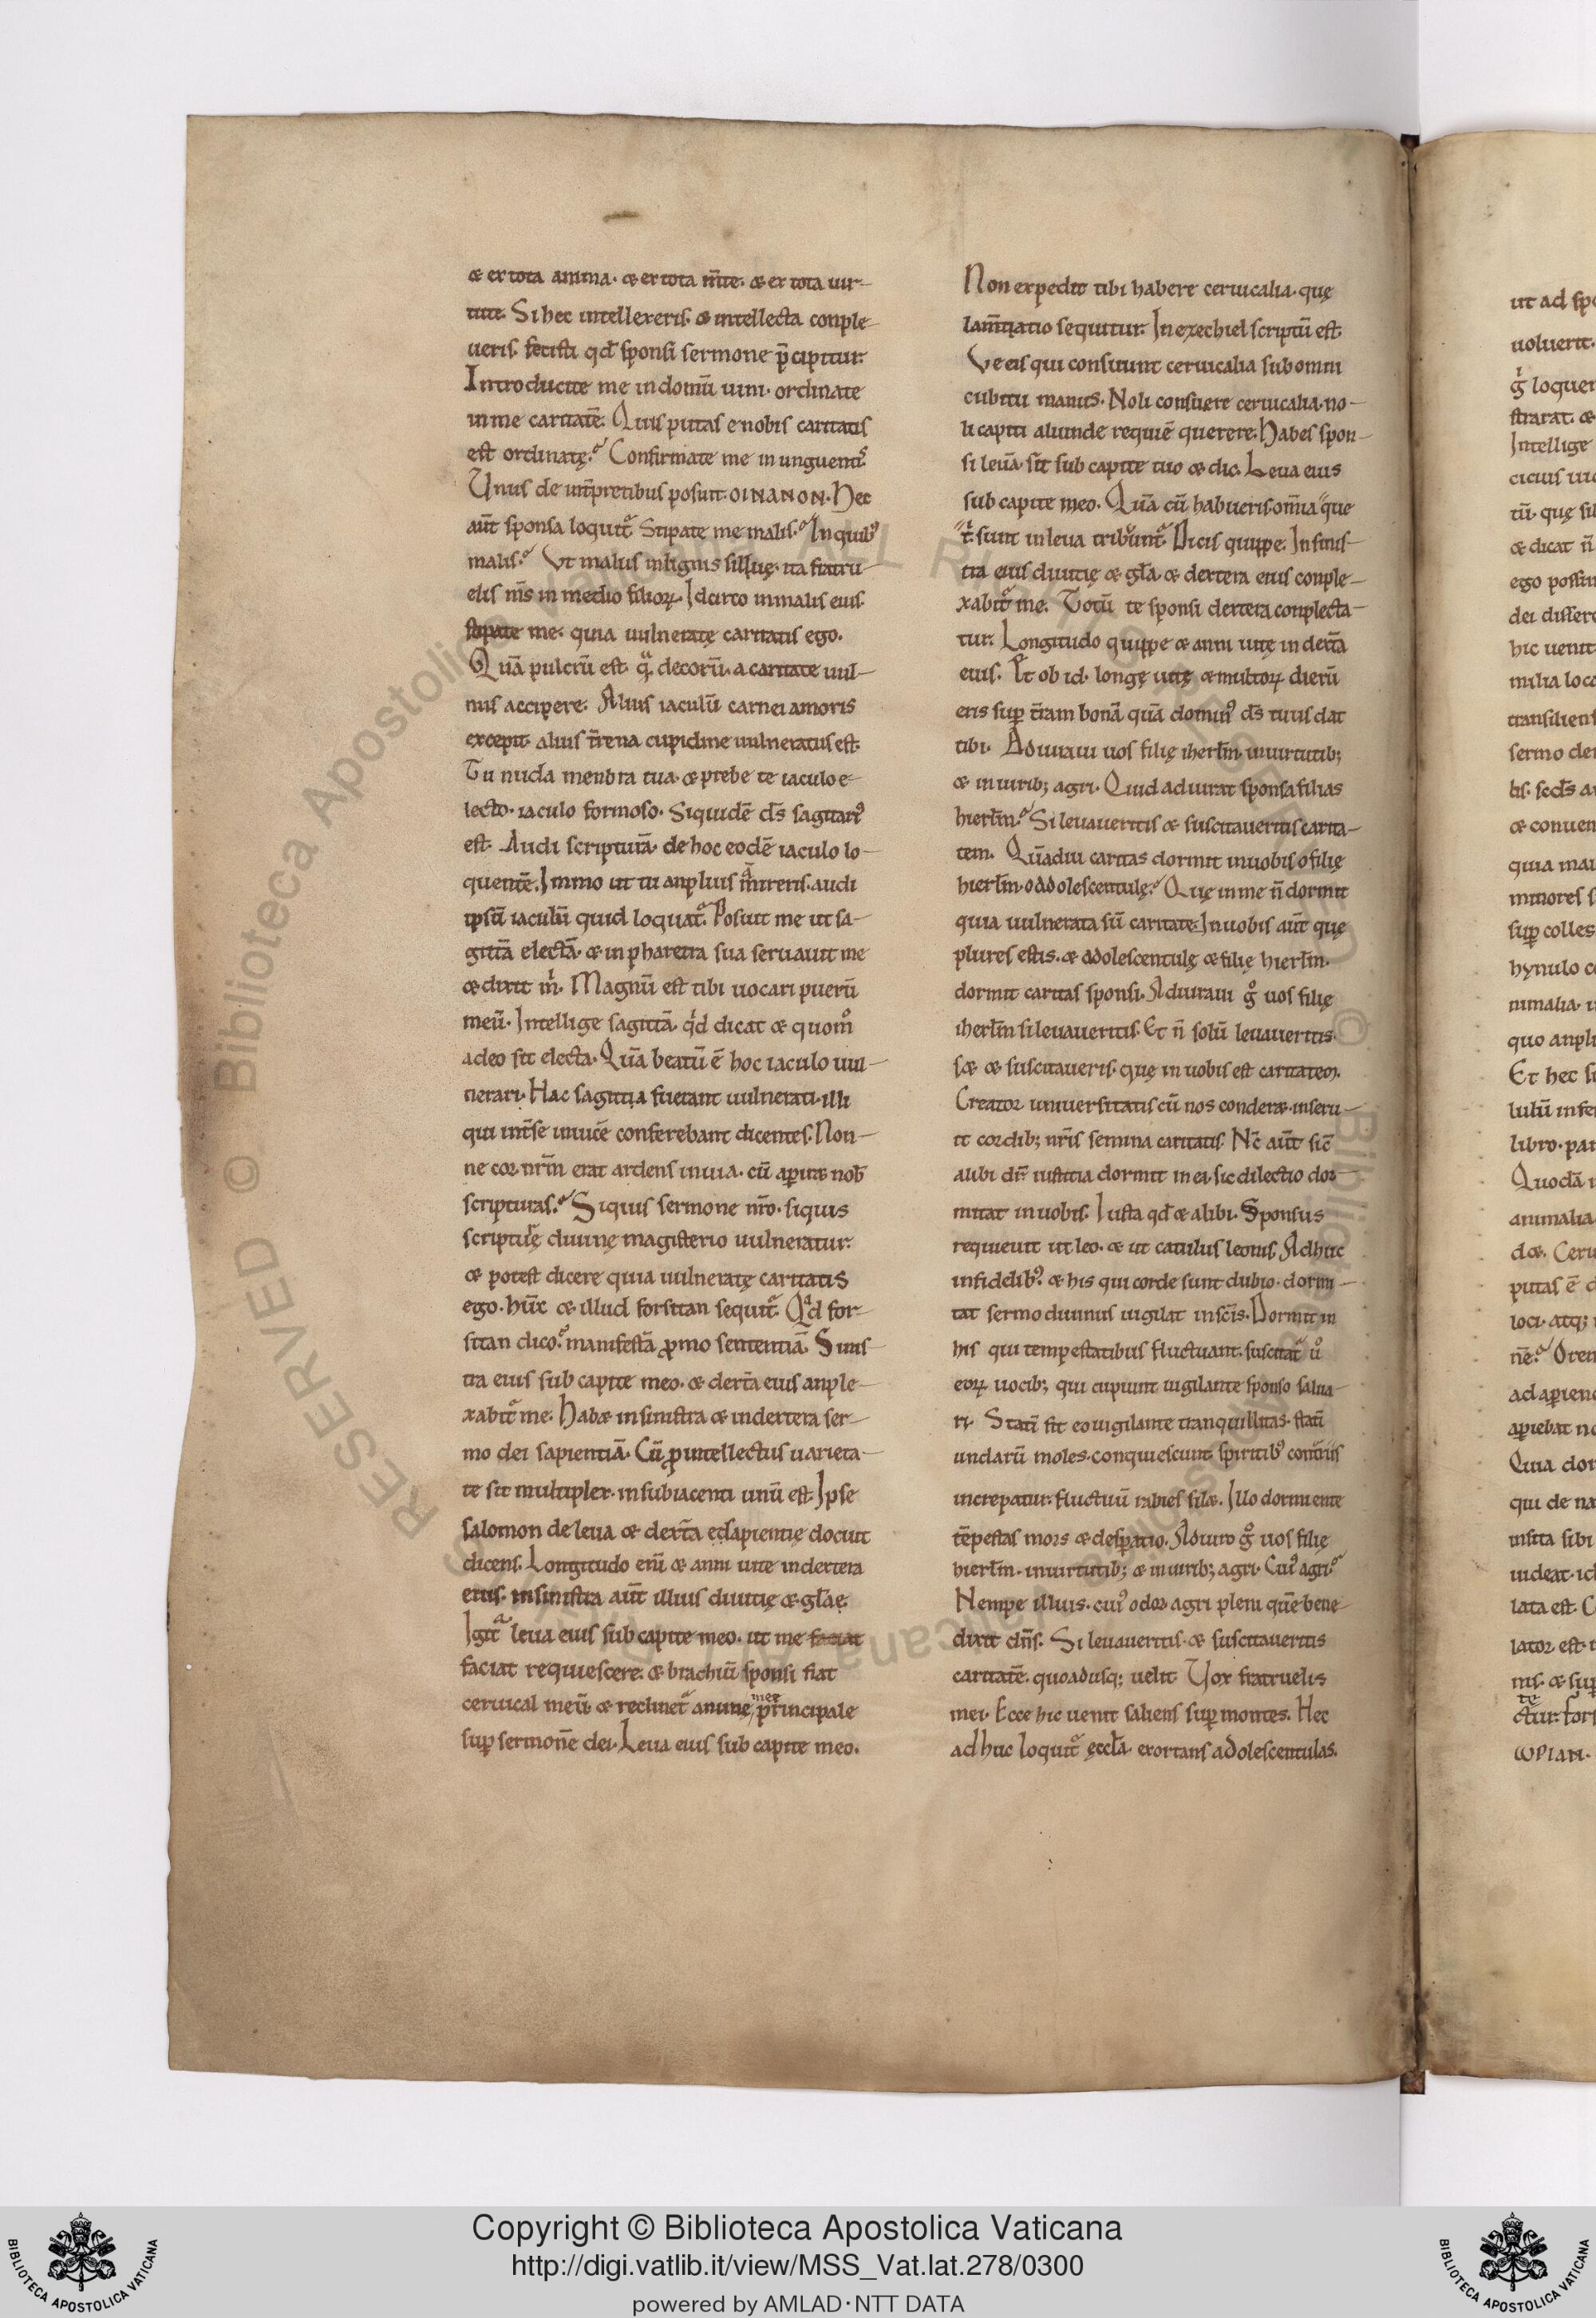 & ex tota anima· & ex tota m̄te· & ex tota uir-
tute. Si hec intellexeris. & intellecta conple-
ueris. fecisti qđ sponsi sermone p̄cipitur.
Introducite me in domū uini· ordinate
in me caritatē. Quis putas e nobis caritatis
est ordinatę? Confirmate me in unguentis.
Unus de int̄pretibus posuit· OINANON· Hec
aūt sponsa loquit᷑. Stipate me malis. In quib'
malis? Vt malus in lignis silluę· ita fratru-
elis m̄s in medio filioꝝ. Idcirco in malis eius.
stipate me. quia uulneratę caritatis ego.
Quā pulcrū est. qᵃ decorū. a caritate uul-
nus accipere. Alius iaculū carnei amoris
excepit. alius t̄rena cupidine uulneratus est.
Tu nuda menbra tua· & prebe te iaculo e-
lecto· iaculo formoso. Siquidē d̄s sagittari'
est. Audi scripturā· de hoc eodē iaculo lo-
quentē. Immo ut tu anplius mireris· audi
ipsū iaculū quid loquat᷑. Posuit me ut sa-
gittā electā. & in pharetra sua seruauit me
& dixit m̍. Magnū est tibi uocari puerū
meū. Intellige sagittā qͥd dicat & quom̊
adeo sit electa. Quā beatū ē hoc iaculo uul-
nerari. Hac sagitta fuerant uulnerati· illi
qui int̄se inuicē conferebant dicentes. Non-
ne cor nr̄m erat ardens in uia. cū aper̄& nob̄
scripturas? Siquis sermone nr̄o. siquis
scripturę diuinę magisterio uulneratur.
& potest dicere quia uulneratę caritatis
ego. hūc & illud forsitan sequit᷑. Qͥd for-
sitan dico? manifestā ꝓmo sententiā. Sinis-
tra eius sub capite meo. & dext̄a eius anple-
xabit᷑ me. Hab& in sinistra & in dextera ser-
mo dei sapientiā. Cū ꝓ intellectus uarieta-
te sit multiplex· in subiacenti unū est. Ipse
salomon de leua & dext̄a ei sapientię docuit
dicens. Longitudo enī & anni uite in dextera
eius. in sinistra aūt illius diuitię & gl̄ae.
Igit᷑ leua eius sub capite meo. ut me faciat
faciat requiescere. & brachiū sponsi fiat
ceruical meū. & reclinet᷑ anime mee p̄rincipale
suꝑ sermonē dei. Leua eius sub capite meo.
Non expedit tibi habere ceruicalia· quę
lam̄tatio sequitur. In ezechiel scriptū est.
Ve eis qui consuunt ceruicalia sub omni
cubitu manus. Noli consuere ceruicalia. no-
li capiti aliunde requiē querere. Habes spon-
si leuā. sit sub capite tuo & dic. Leua eius
sub capite meo. Quā cū habueris. om̄ia que
t̄ sunt in leua tribuunt᷑. Dicis quippe. In sinis-
tra eius diuitię & gl̄a. & dextera eius conple-
xabit᷑ me. Totū te sponsi dextera conplecta-
tur. Longitudo quippe & anni uitę in dext̄a
eius. Et ob id. longę uitę & multoꝝ dierū
eris suꝑ t̄ram bonā quā domin' d̄s tuus dat
tibi. Adiuraui uos filię iherl̄m· in uirtutib;
& in uirib; agri. Quid adiurat sponsa filias
hierl̄m? Si leuaueritis & suscitaueritis carita-
tem. Quādiu caritas dormit in uobis o filię
hierl̄m· o adolescentulę? Quę in me n̄ dormit
quia uulnerata sū caritate. In uobis aūt quę
plures estis. & adolescentulę & filię hierl̄m.
dormit caritas sponsi. Adiuraui g̊ uos filię
iherl̄m si leuaueritis. Et n̄ solū leuaueritis.
s& & suscitaueris. quę in uobis est caritatem.
Creator uniuersitatis cū nos conder&. inseru-
it cordib; nr̄is semina caritatis. Nc̄ aūt sic̄
alibi dr̄ iustitia dormit in ea. sic dilectio dor-
mitat in uobis. Iusta qđ & alibi. Sponsus
requieuit ut leo. & ut catulus leonis. Adhuc
infidelib'. & his qui corde sunt dubio. dormi-
tat sermo diuinus uigilat in scīs. Dormit in
his qui tempestatibus fluctuant. suscitat᷑ ů
eoꝝ uocib; qui cupiunt uigilante sponso salua-
ri. Statī fit eo uigilante tranquillitas. statī
undarū moles· conquiescunt spiritib' contrariis
increpatur. fluctuū rabies sil&. Illo dormiente
tēpestas mors & desꝑatio. Adiuro g̊ uos filię
hierl̄m· in uirtutib; & in uirib; agri. Cui' agri?
Nempe illius. cui' odor agri pleni quē bene-
dixit dn̄s. Si leuaueritis. & suscitaueritis
caritatē. quoadusq; uelit. Uox fratruelis
mei. Ecce hic uenit saliens suꝑ montes. Hec
adhuc loquit᷑ eccl̄a. exortans adolescentulas.
Copyright © Biblioteca Apostolica Vaticana
http://digi.vatlib.it/view/MSS_Vat.lat.278/0300
powered by AMLAD·NTT DATA